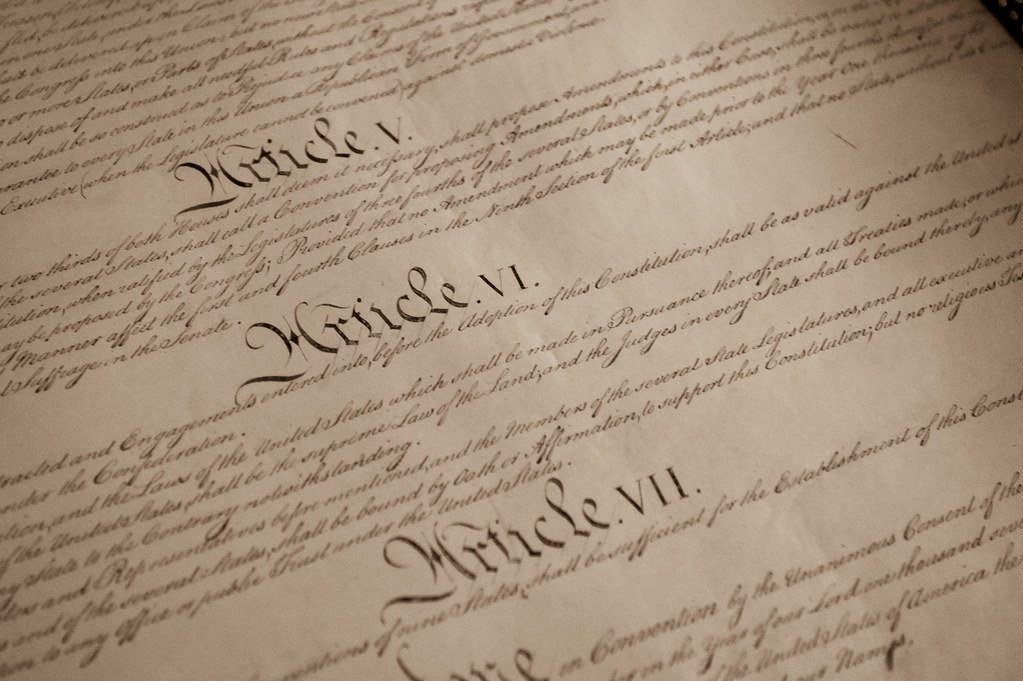 on Claim of the
into this Union; but no new States
or more States, or Parts of States, without the Consent of
dispose of and make all needful Rules and Regulations
shall be so construed as to Prejudice any Claims of the United States
to every State in this Union a Republican Form of Government,
Executive (when the Legislature cannot be convened) against domestic Violence.
Article. V.
two thirds of both Houses shall deem it necessary, shall propose Amendments to this Constitution, or, on the
the several States, shall call a Convention for proposing Amendments, which, in either Case, shall be valid to
when ratified by the Legislatures of three fourths of the several States, or by Conventions in three fourths thereof,
be proposed by the Congress; Provided that no Amendment which may be made prior to the Year One thousand eight
Manner affect the first and fourth Clauses in the Ninth Section of the first Article; and that no State, without its
Suffrage in the Senate.
Article. VI.
and Engagements entered into, before the Adoption of this Constitution, shall be as valid against the United
under the Confederation.
and the Laws of the United States which shall be made in Pursuance thereof; and all Treaties made, or which
of the United States, shall be the supreme Law of the Land; and the Judges in every State shall be bound thereby, any
State to the Contrary notwithstanding.
and Representatives before mentioned, and the Members of the several State Legislatures, and all executive
and of the several States, shall be bound by Oath or Affirmation, to support this Constitution; but no religious
to any office or public Trust under the United States.
Article. VII.
of nine States, shall be sufficient for the Establishment of this
Done in Convention by the Unanimous Consent of the
in the Year of our Lord one thousand
of the United States of America the
our Names,